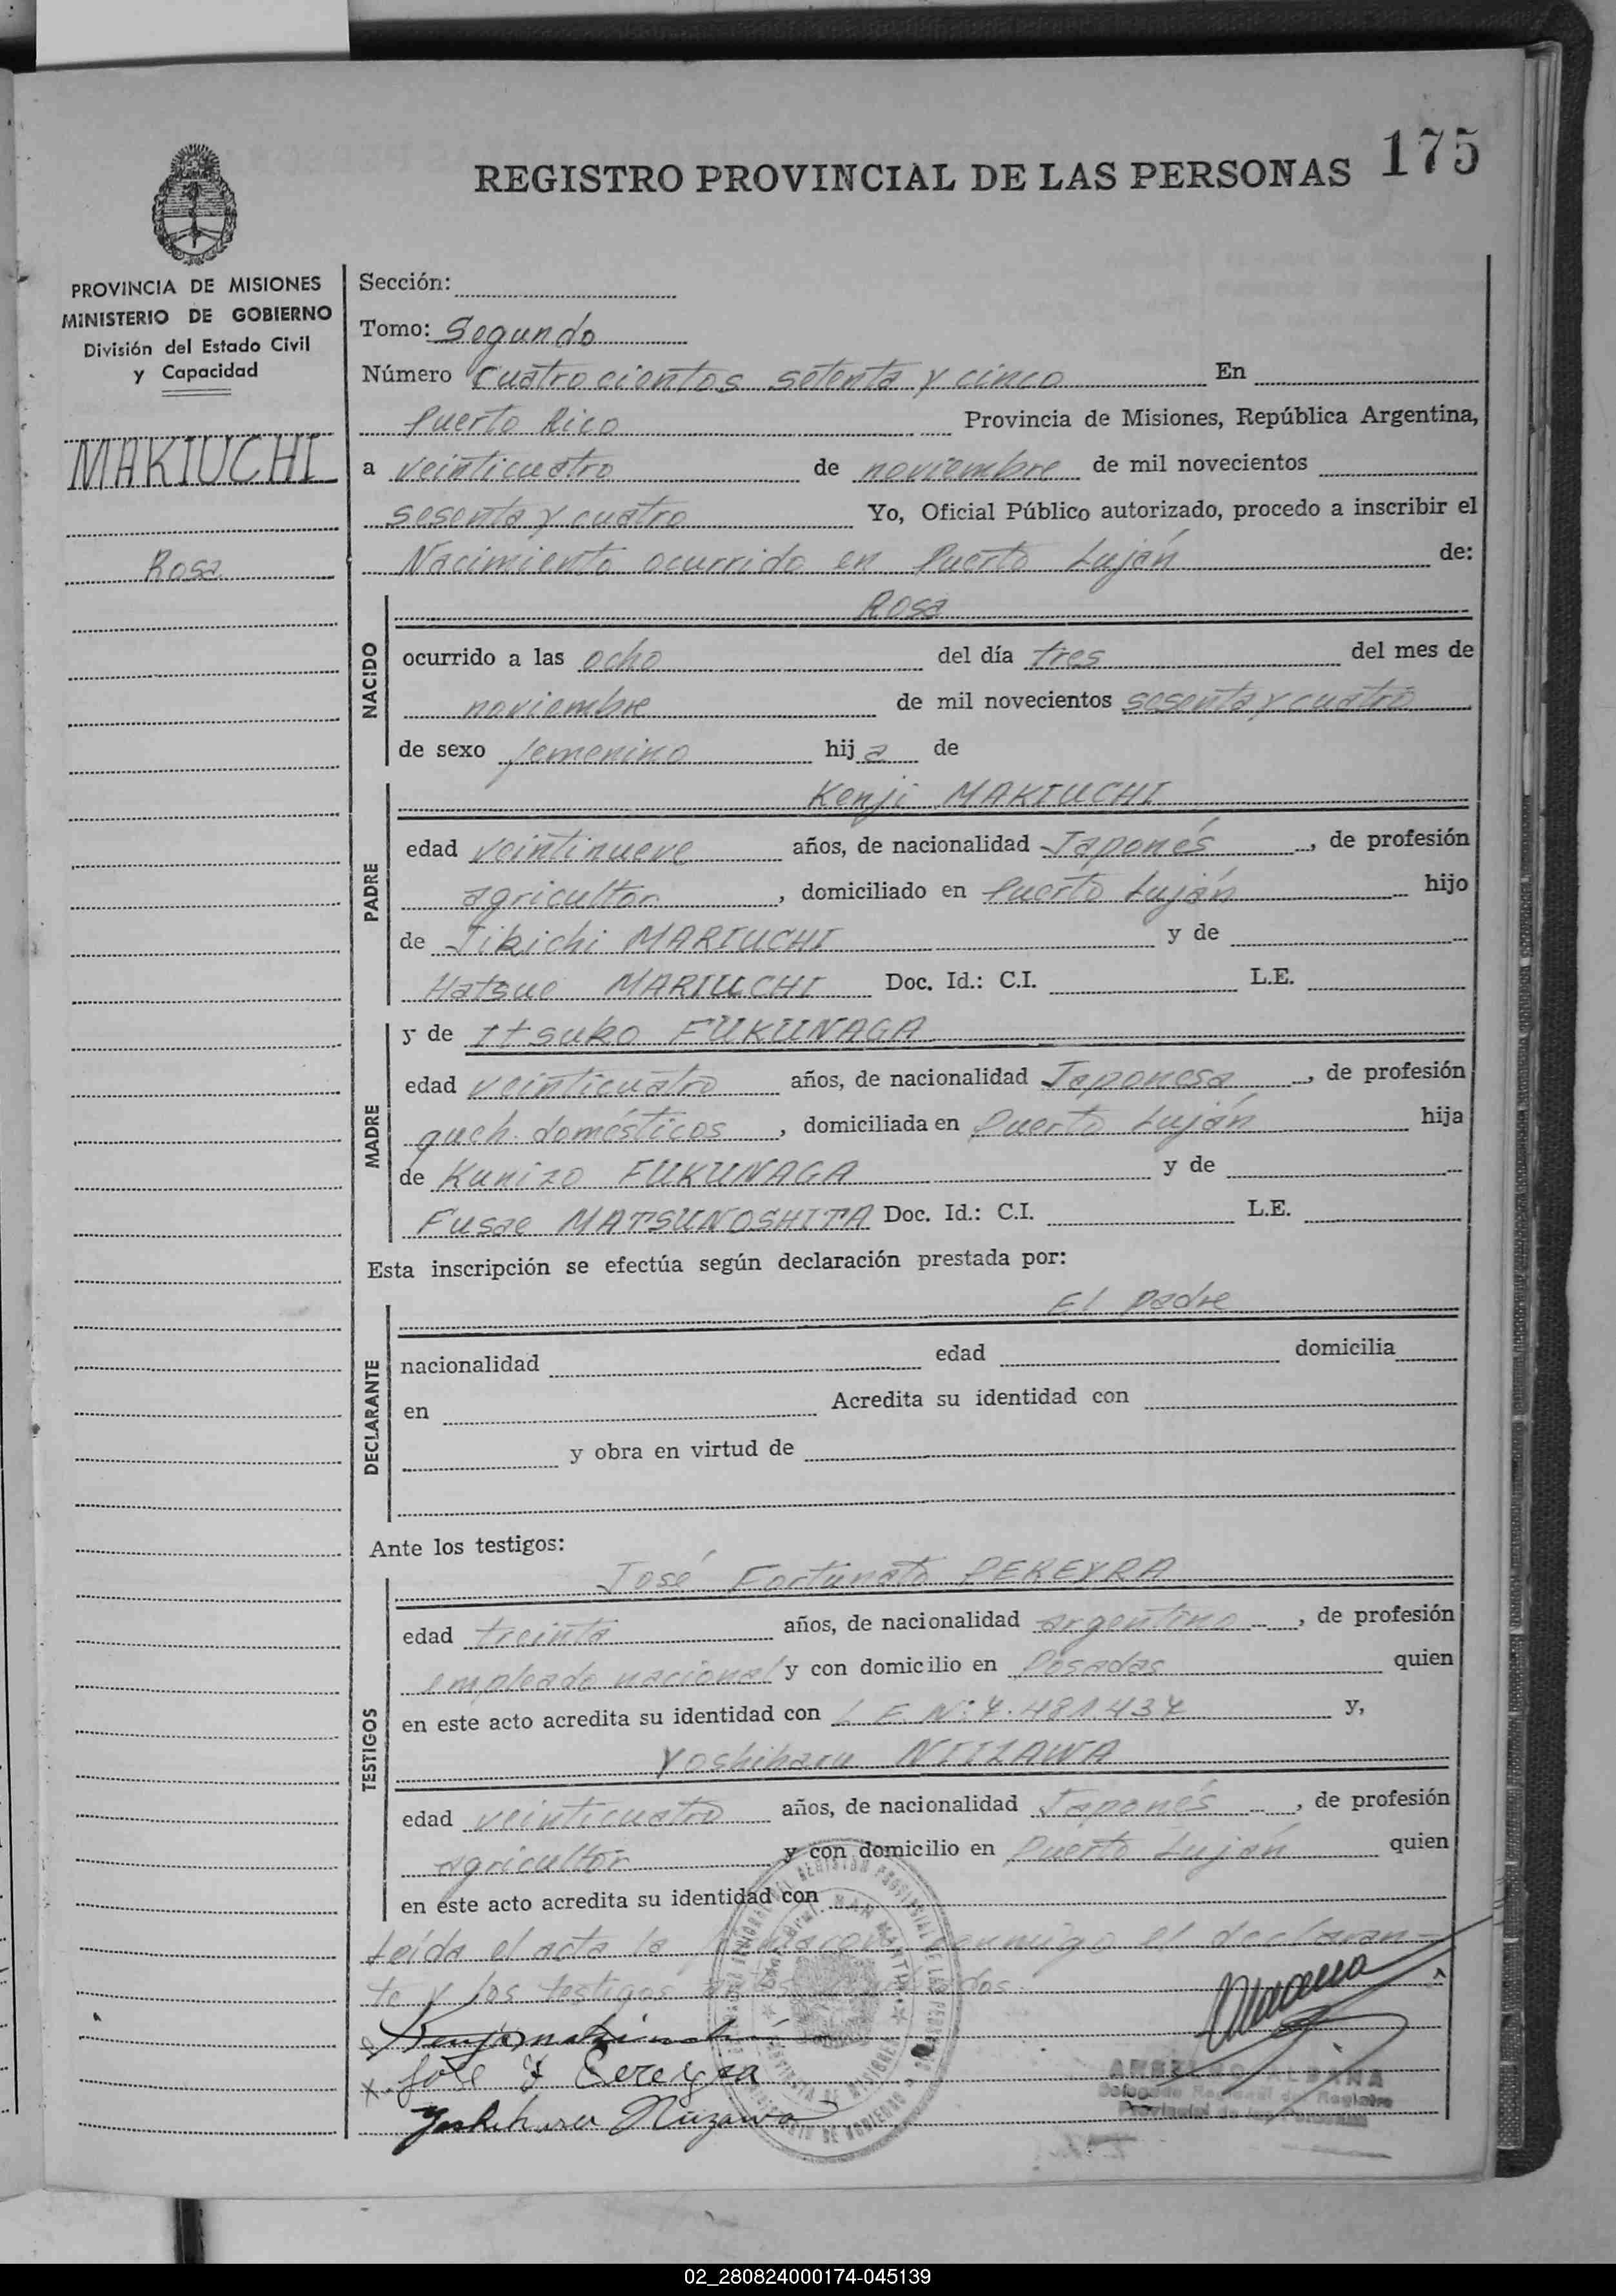 175
REGISTRO PROVINCIAL DE LAS PERSONAS
PROVINCIA DE MISIONES
MINISTERIO DE GOBIERNO
División del Estado Civil
y Capacidad
MAKIUCHI
Rosa
Sección:
Tomo: Segundo
Número Cuatrocientos setenta y cinco En
Puerto Rico Provincia de Misiones, República Argentina,
a veinticuatro de noviembre de mil novecientos
sesenta y cuatro Yo, Oficial Público autorizado, procedo a inscribir el
Nacimiento ocurrido en Puerto Luján de:
NACIDO
Rosa
ocurrido a las ocho del día tres del mes de
noviembre de mil novecientos sesenta y cuatro
de sexo femenino hija de
PADRE
Kenji MAKIUCHI
edad veintinueve años, de nacionalidad Japonés, de profesión
agricultor, domiciliado en Puerto Luján hijo
de Jikichi MARIUCHI y de
Hatsue MARIUCHI Doc. Id.: C.I. L.E.
MADRE
y de Itsuko FUKUNAGA
edad veinticuatro años, de nacionalidad Japonesa, de profesión
queh. domésticos, domiciliada en Puerto Luján hija
de Kunizo FUKUNAGA y de
Fusae MATSUNOSHITA Doc. Id.: C.I. L.E.
Esta inscripción se efectúa según declaración prestada por:
DECLARANTE
El padre
nacionalidad edad domicilia
en Acredita su identidad con
y obra en virtud de
Ante los testigos:
TESTIGOS
José Fortunato PEREYRA
edad treinta años, de nacionalidad argentino, de profesión
empleado nacional y con domicilio en Posadas quien
en este acto acredita su identidad con L E. Nº 7.481.437 y,
Yoshiharu NIIZAWA
edad veinticuatro años, de nacionalidad Japonés, de profesión
agricultor y con domicilio en Puerto Luján quien
en este acto acredita su identidad con
Leída el acta la firmaron conmigo el declaran-
te y los testigos
Kenji Makiuchi
x José F Pereyra
Yoshiharu Niizawa
Delegado Regional del Registro
Provincial de las Personas
02_280824000174-045139